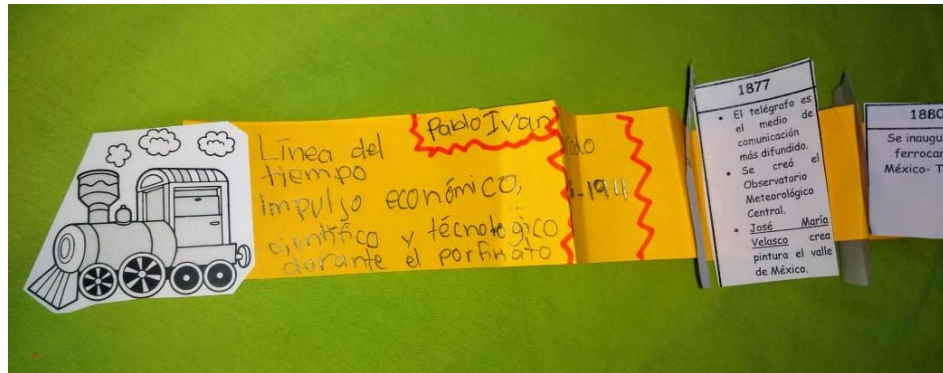 Pablo Ivan
Línea del
tiempo
impulso económico,
científico y técnologico
durante el porfiriato
-1911
1877
• El telégrafo es
el medio de
comunicación
más difundido.
• Se creó el
Observatorio
Meteorológico
Central.
• José María
Velasco crea
pintura el valle
de México.
1880
Se inaugu
ferrocar
México- T